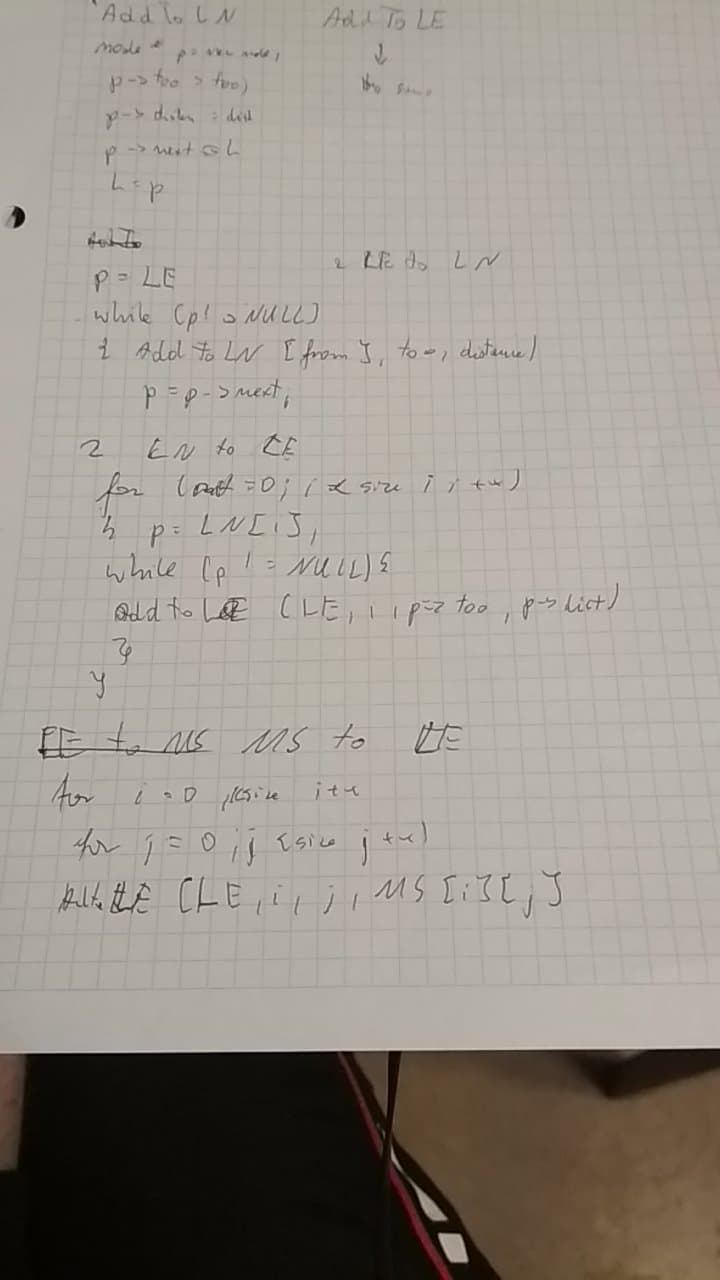 Add To LN
Add To LE
node * p = new node;
p -> too = too;
p -> dist
p -> next = L
L = p
p = LE
2 LE to LN
while (p != NULL)
{ Add to LN [from], too, distance)
p = p -> next;
2 LN to LE
for ( =0; i < size i i++)
{ p = LN[i];
while (p != NULL) {
add to LE (LE, i, p-> too, p-> dist)
}
}
LE to MS MS to LE
for i = 0 i<size i++
for j = 0; j < size j++)
LE (LE, i, j, MS [i][j]